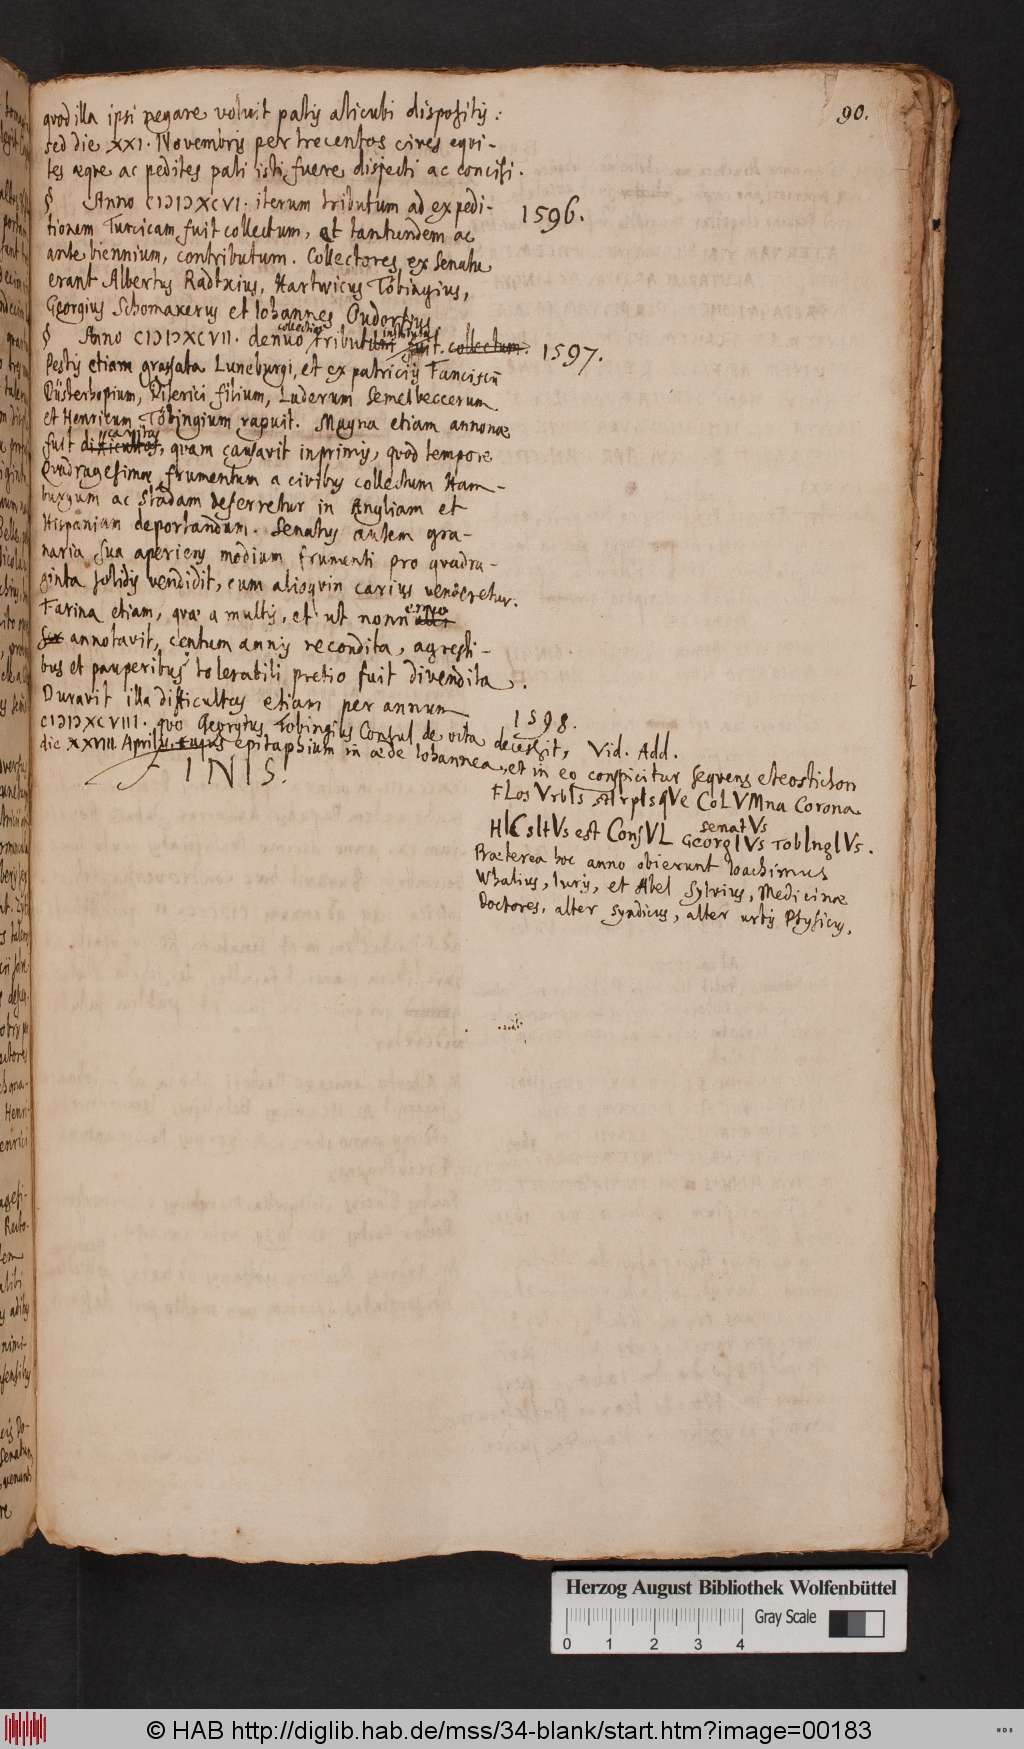 90.
quod illa ipsi negare voluit palis alicubi dispositis:
sed die XXI. Novembris per trecentos cives equi-
tes æque ac pedites pali isti fuere disjecti ac concisi.
§ Anno CIƆIƆXCVI. iterum tributum ad expedi-
tionem Turcicam fuit collectum, et tantundem ac
ante biennium, contributum. Collectores ex Senatu
erant Albertus Radtkius, Hartwicus Töbingius,
Georgius Schomakerus et Iohannes Oudorpius
1596.
§ Anno CIƆIƆXCVII. denuo collectio tributum instituta fuit collectum. 1597.
Pestis etiam grassata Luneburgi, et ex patriciis Franciscū
Düsterhopium, Diserici filium, Luderum Semelbeccerum
et Henricum Töbingium rapuit. Magna etiam annonæ
fuit caritas, quam causavit inprimis, quod tempore
Quadragesimæ frumentum a civibus collectum Ham-
burgum ac Stadam deferretur in Angliam et
Hispaniam deportandum. Senatus autem gra-
naria sua aperiens modium frumenti pro quadra-
ginta solidis vendidit, cum alioqvin carius venderetur.
Farina etiam, quæ a multis, et ut nonn
annotavit, centum annis recondita, agresti-
bus et pauperibus tolerabili pretio fuit divendita.
Duravit illa difficultas etiam per annum
CIƆIƆXCVIII. quo Georgius Tobingius Consul de vita decessit, Vid. Add.
1598.
die XXVIII Aprilis. cujus epitaphium in æde Iohannea, et in eo conspicitur seqvens eteostichon
FINIS.
FLos VrbIs stIrpIsqVe CoLVMna Corona
HIC sItVs est ConsVL senatVs GeorgIVs TobIngIVs.
Præterea hoc anno obierunt Ioachimus
Whalius, Iuris, et Abel Sylvius, Medicinæ
Doctores, alter syndicus, alter urbis Physicus.
Herzog August Bibliothek Wolfenbüttel
Gray Scale
0 1 2 3 4
© HAB http://diglib.hab.de/mss/34-blank/start.htm?image=00183